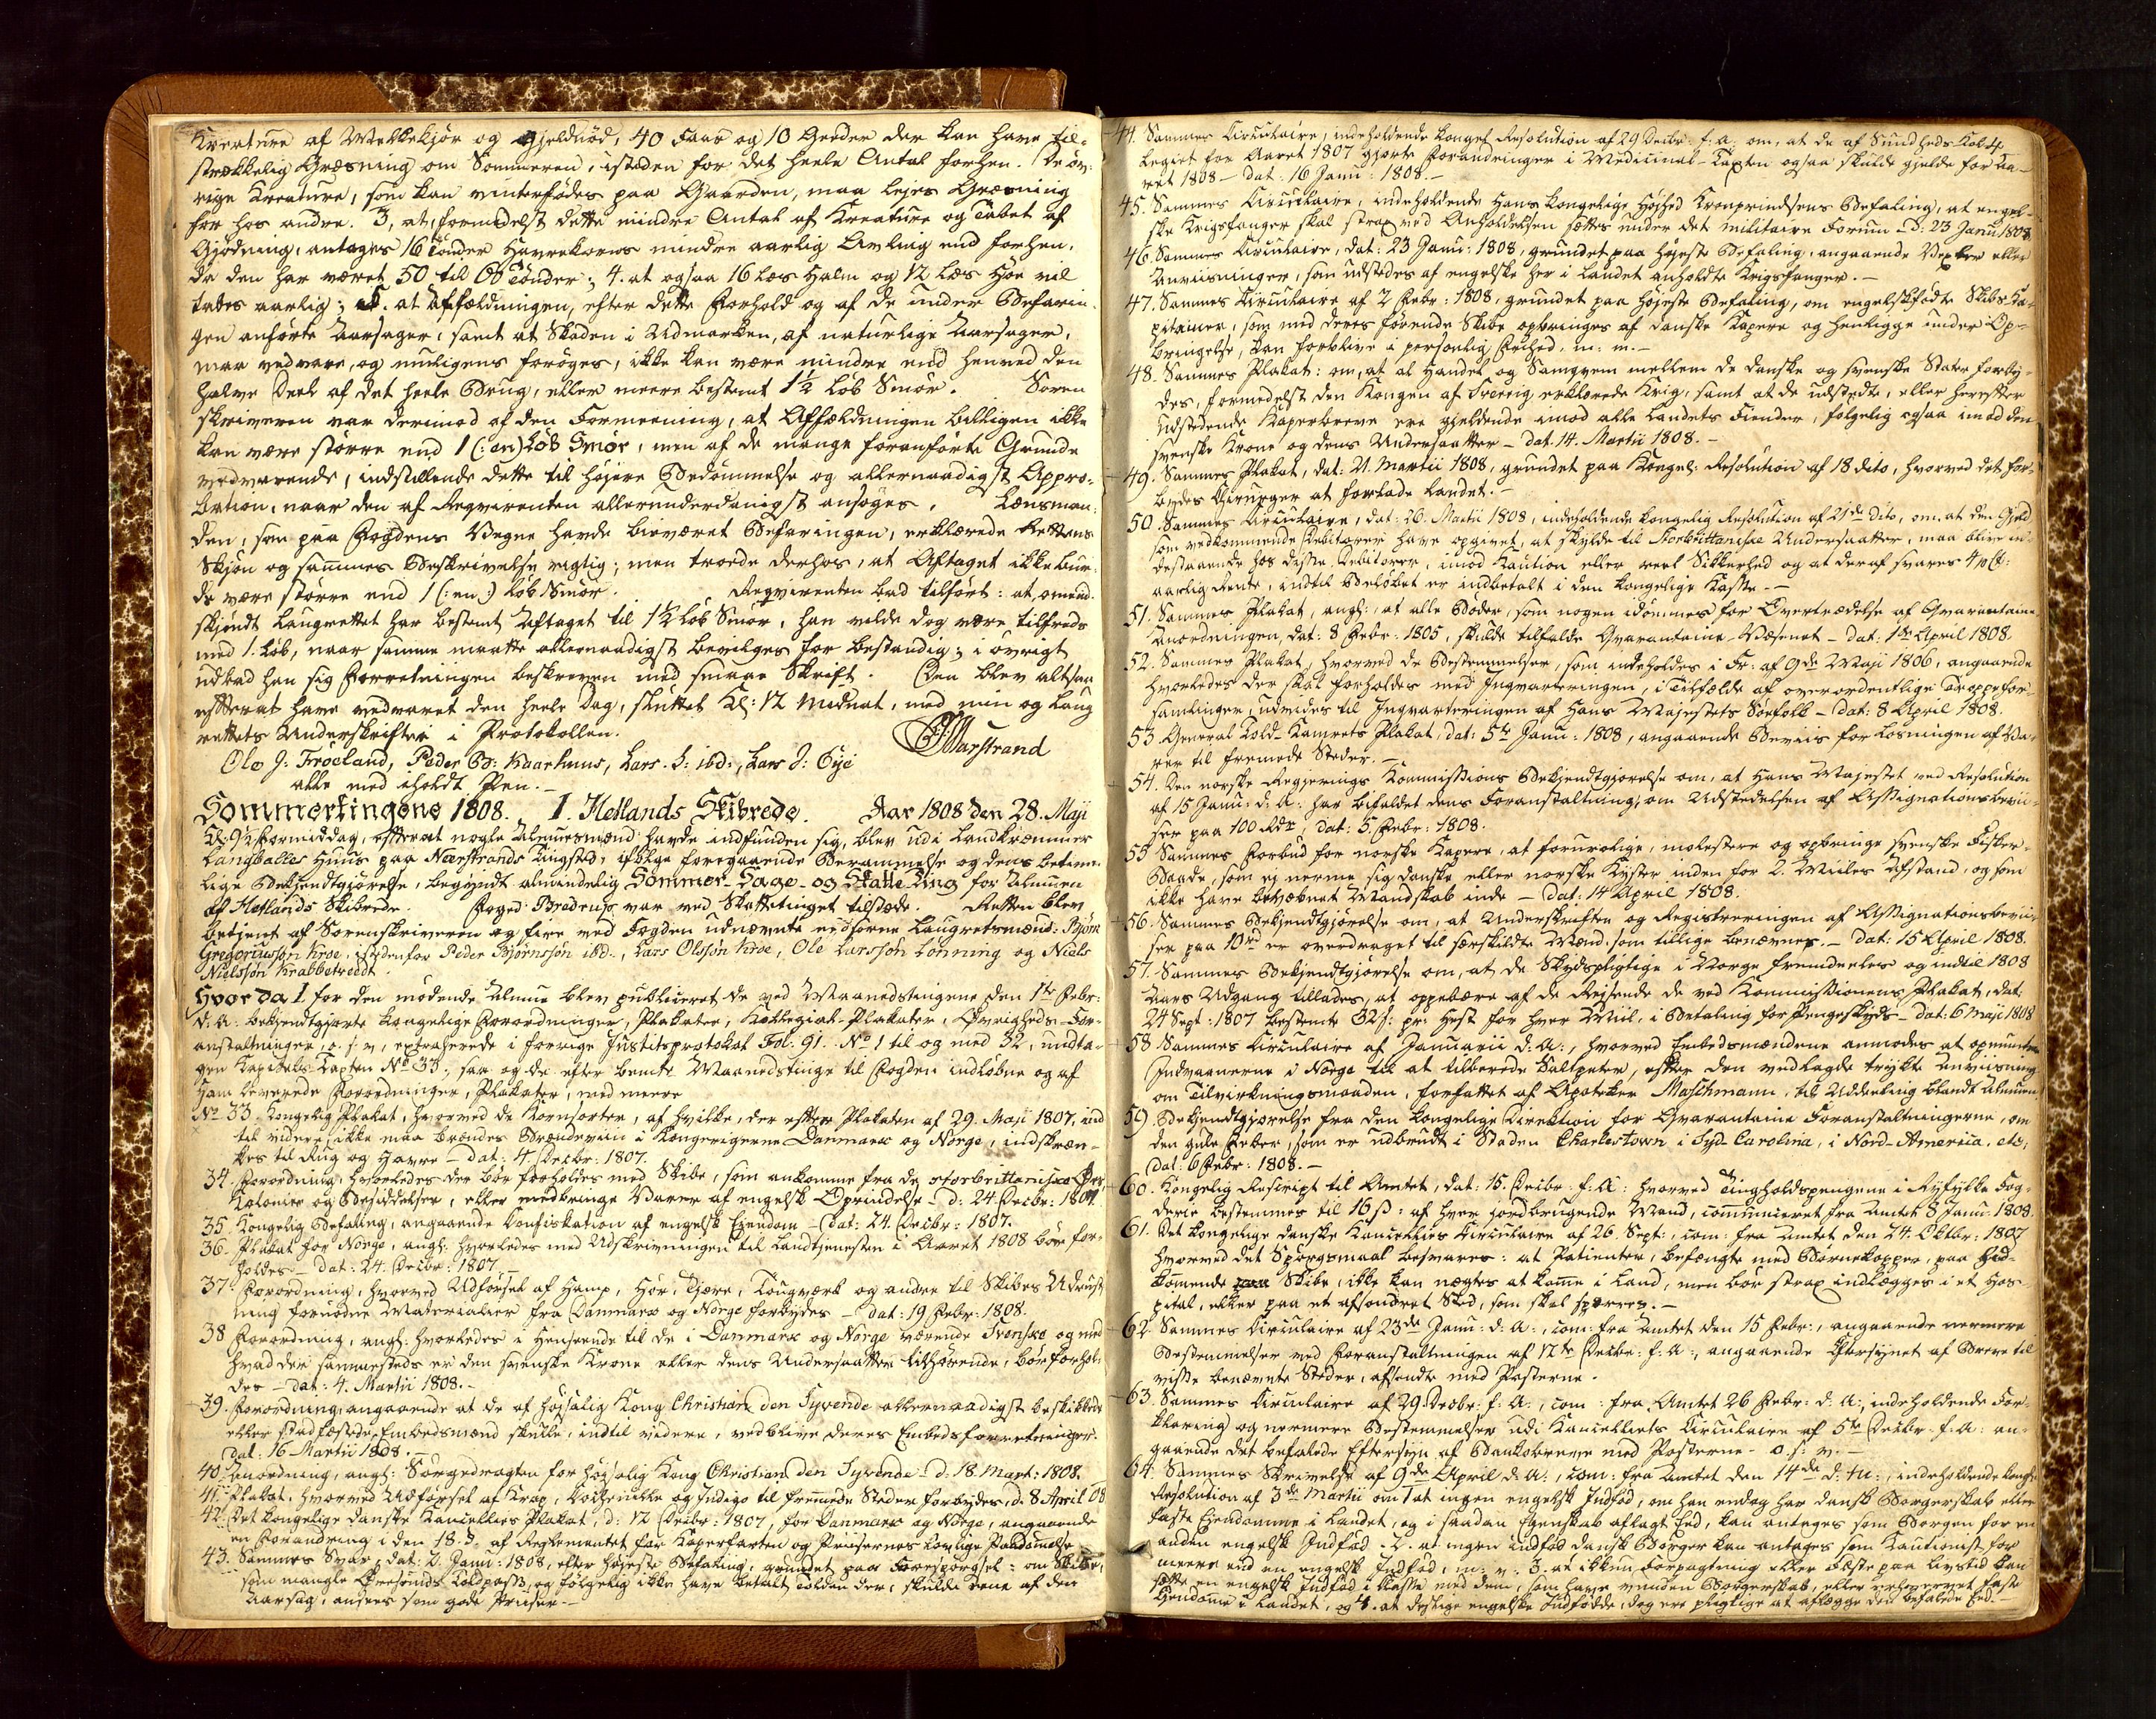 Kreature af Melkekjør og Gjeldnød, 40 Faar og 10 Geeder der kan have til-
strækkelig Græsning om Sommeren, istæden for det heele Antal forhen. De øv-
rige Kreature, som kan vinterfødes paa Gaarden, maa lejes Græsning
for hos andre. 3, at formedelst dette mindre Antal af Kreature og Tabet af
Gjødning, antages 16 Tønder Havrekorns mindre aarlig Avling end forhen,
da den har været 50 til 60 Tønder; 4. at ogsaa 16 Læs Halm og 12 Læs Høe vil
tabes aarlig; 5. at Affældningen, efter dette Forhold og af de under Befarin-
gen anførte Aarsager, samt at Skaden i Udmarken, af naturlige Aarsager,
maa vedvare, og muligens forøges, ikke kan være mindre end henved den
halve Deel af det heele Brug, eller meere bestemt 1½ Løb Smør. Soren
skriveren var derimod af den Formeening, at Affældningen billigen ikke
kan være større end 1 (:en) Løb Smør, men af de mange foranførte Grunde
vedvarende, indstillende dette til højere Bedømmelse og allernaadigst Appro-
bation, naar den af Reqvirenten allerunderdanigst ansøges. Lænsman-
den, som paa Fogdens Vegne havde biværet Befaringen, erklærede Rettens
Skjøn og sammes Beskrivelse rigtig; men troede derhos, at Aftaget ikke bur-
de være større end 1 (:en:) Løb Smør. Reqvirenten bad tilført: at, omend-
skjøndt Laugrettet har bestemt Aftaget til 1½ Løb Smør, han vilde dog være tilfreds
med 1. Løb, naar samme maatte allernaadigst bevilges for bestandig; i øvrigt
udbad han sig Forretningen beskreven med smaae Skrift. Den blev altsaa
efterat have vedvaret den heele Dag, sluttet Kl: 12 Midnat, med min og Laug
rettets Underskrifter i Protokollen.
Marstrand
Ole J: Frøeland, Peder B: Kaarhuus, Lars S: ibd:, Lars J: Eije
alle med iholdt Pen.-
Sommertingene 1808. I. Hetlands Skibrede. Aar 1808 den 28. Maji
Kl: 9½ Formiddag, efterat nogle Almuesmænd havde indfunden sig, blev udi Landkræmmer
Langballes Huus paa Nærstrands Tingsted, ifølge foregaaende Berammelse og dens betime-
lige Bekjendtgjørelse, begyndt almindelig Sommer- Sage- og Skatte-Ting for Almuen
af Hetlands Skibrede. Foged Bredrup var ved Skattetinget tilstæde. Retten blev
betjent af Sorenskriveren og fire ved Fogden udnævnte eedsorne Laugretsmænd: Bjørn
Gregoriussøn Kroe, istedenfor Peder Bjørnssøn ibd:, Lars Olssøn Kroe, Ole Larssøn Lønning og Niels
Nielssøn Krabbetvedt.
Hvor da I for den mødende Almue blev publiceret de ved Maanedstingene den 1te Febr:
d: A: bekjendtgjorte kongelige Forordninger, Plakater, Kollegial-Plakater, Øvrigheds-For-
anstaltninger, o. s. v., extraherede i forrige Justitsprotokol Fol: 91. No 1 til og med 32, undta-
gen Kapitels-Taxten No 33, saa og de efter bemte Maanedstinge til Fogden indløbne og af
ham leverede Forordninger, Plakater, med meere
No 33. Kongelig Plakat, hvorved de Kornsorter, af hvilke, der efter Plakaten af 29. Maji 1807, ind
til videre, ikke maa brændes Brændeviin i Kongerigerne Danmark og Norge, indskræn-
kes til Rug og Havre - dat: 4 Decbr: 1807.
34. Forordning, hvorledes der bør forholdes med Skibe, som ankomme fra de storbrittaniske Øer
Kolonier og Besiddelser, eller medbringe Varer af engelsk Oprindelse - d: 24 Decbr: 1807.
35. Kongelig Befaling, angaaende Konfiskation af engelsk Ejendom - dat: 24. Decbr: 1807.
36. Plakat for Norge, angl: hvorledes med Udskrivningen til Landtjenesten i Aaret 1808 bør for-
holdes - dat: 24. Decbr: 1807.-
37. Forordning, hvorved Udførsel af Hamp, Hør, Tjære, Tougværk og andre til Skibes Udrust-
ning fornødne Materialier fra Danmark og Norge forbydes - dat: 19 Febr: 1808.
38 Forordning, angl: hvorledes i Henseende til de i Danmark og Norge værende Svenske og med
hvad der sammesteds er den svenske Krone eller dens Undersaatter tilhørende, bør forhol-
des - dat: 4. Martii 1808.-
39. Forordning, angaaende at de af højsalig Kong Christian den Syvende allernaadigst beskikkede
eller stadfæstede Embedsmænd skulle, indtil videre, vedblive deres Embedsforretninger.
dat: 16 Martii 1808.-
40. Anordning, angl: Sørgedragten for højsalig Kong Christian den Syvende - d: 18. Mart: 1808.
41. Plakat, hvorved Udførsel af Krap, Cochenille og Indigo til fremmede Steder forbydes, d: 8 April 08
42. Det kongelige danske Kancellies Plakat, d: 12 Decbr: 1807, for Danmark og Norge, angaaende
en Forandring i den 18. §. af Reglementet for Kaperfarten og Prisernes lovlige Paadømmelse
43. Sammes Svar, dat: 2. Janu: 1808, efter højeste Befaling, grundet paa Forespørgsel: om Skibe,
som mangle Øresunds Toldpasss, og følgelig ikke have betalt Tolden der, skulde ene af den
Aarsag, ansees som gode Priser.-
44. Sammes Circulaire, indeholdende kongel: Resolution af 29 Decbr: f. a: om, at de af Sundheds-Kol-
legiet for Aaret 1807 gjorte Forandringer i Medicinal-Taxten ogsaa skulde gjelde for Aa-
ret 1808 - dat: 16 Janu: 1808.-
45. Sammes Circulaire, indeholdende Hans kongelige Højhed Kronprindsens Befaling, at engel-
ske Krigsfanger skal strax ved Anholdelsen sættes under det militaire Forum - d: 23 Janu 1808.
46. Sammes Circulaire, dat: 23 Janu: 1808, grundet paa højeste Befaling, angaaende Vexler eller
Anviisninger, som udstedes af engelske her i Landet anholdte Krigsfanger.-
47. Sammes Circulaire af 2 Febr: 1808, grundet paa højeste Befaling, om engelskfødte Skibs-Ka-
pitainer, som med deres førende Skibe opbringes af danske Kapere og henligge under Op-
bringelse, kan forblive i personlig Frihed, m: m.-
48. Sammes Plakat: om, at al Handel og Samqvem mellem de danske og svenske Stater forby-
des, formedelst den Kongen af Sverrig erklærede Krig, samt at de udstedte, eller herefter
udstedende Kaperbreve ere gjeldende imod alle Landets Fiender, følgelig ogsaa imod den
svenske Krone og dens Undersaatter - dat. 14. Martii 1808.-
49. Sammes Plakat, dat: 21. Martii 1808, grundet paa Kongel: Resolution af 18 dito, hvorved det for-
bydes Chirurger at forlade Landet.-
50. Sammes Circulaire, dat: 26. Martii 1808, indeholdende kongelig Resolution af 21de dito, om, at den Gjeld
som vedkommende Debitorer have opgivet, at skylde til Storbrittaniske Undersaatter, maa blive in-
destaaende hos disse Debitorer, imod Kaution eller reel Sikkerhed og at deraf svares 4 pCt:
aarlig Rente, indtil Beløbet er indbetalt i den kongelige Kasse.-
51. Sammes Plakat, angl:, at alle Bøder, som nogen idømmes for Overtrædelse af Qvarantaine
Anordningen, dat: 8 Febr: 1805, skulde tilfalde Qvarantaine-Væsenet - dat: 1te April 1808.
52. Sammes Plakat, hvorved de Bestemmelser, som indeholdes i Fr: af 9de Maji 1806, angaaende
hvorledes der skal forholdes med Inqvarteringen, i Tilfælde af overordentlige Troppefor-
samlinger, udvides til Inqvarteringen af Hans Majestets Søefolk - dat: 8 April 1808.
53 General Told-Kamrets Plakat, dat: 5te Janu: 1808, angaaende Beviis for Losningen af Va-
rer til fremmede Steder.-
54. Den norske Regjerings Kommissions Bekjendtgjørelse om, at Hans Majestet ved Resolution
af 15 Janu: d: A: har bifaldet dens Foranstaltning, om Udstedelsen af Assignationsbevii-
ser paa 100 Rdr, dat: 5. Febr: 1808.
55 Sammes Forbud for norske Kapere, at forurolige, molestere og opbringe svenske Fisker-
Baade, som ej nerme sig danske eller norske Kyster inden for 2. Miiles Afstand, og som
ikke have bevæbnet Mandskab inde - dat: 14 April 1808.
56. Sammes Bekjendtgjørelse om, at Underskriften og Registreeringen af Assignationsbevii-
ser paa 10rd er overdraget til særskildte Mænd, som tillige benævnes. - dat: 15 April 1808.
57. Sammes Bekjendtgjørelse om, at de Skydspligtige i Norge fremdeeles og indtil 1808
Aars Udgang tillades, at oppebære af de Rejsende de ved Kommissionens Plakat, dat:
24 Sept: 1807 bestemte 32 s: pr: Hest for hver Miil, i Betaling for Pengeskyds - dat: 6 Maji 1808
58 Sammes Circulaire af Januarii d: A:, hvorved Embedsmændene anmodes at opmuntre
Indvaanerne i Norge til at tilberede Salpeter, efter den vedlagde trykte Anviisning
om Tilvirkningsmaaden, forfattet af Apoteker Maschmann, til Uddeeling blandt Almuen
59. Bekjendtgjørelse fra den kongelige Direktion for Qvarantaine Foranstaltningerne, om
den gule Feber, som er udbrudt i Staden Charlestown i Syd-Carolina, i Nord-America, etc,
dat: 6 Febr: 1808.-
60. Kongelig Rescript til Amtet, dat: 15. Decbr: f: A: hvorved Tingholdspengene i Ryfylke Fog-
derie bestemmes til 16 s: af hver jordbrugende Mand, communiceret fra Amtet 8 Janu: 1808.
61. Det kongelige danske Kancellies Circulaire af 26 Sept:, com: fra Amtet den 24. Oktbr: 1807
hvorved det Spørgsmaal besvares: at Patienter, befængte med Børnekopper, paa Hid-
kommende Skibe, ikke kan nægtes at komme i Land, men bør strax indlægges i et Hos-
pital, eller paa et afsondret Sted, som skal sperres.-
62. Sammes Circulaire af 23de Janu: d: A:, com: fra Amtet den 15 Febr:, angaaende nermere
Bestemmelser ved Foranstaltningen af 12te Decbr: f: A:, angaaende Eftersynet af Breve til
visse benævnte Steder, afsendte med Posterne.
63. Sammes Circulaire af 29. Decbr: f: A:, com: fra Amtet 26 Febr: d: A:, indeholdende For-
klaring og nermere Bestemmelser udi Kancelliets Circulaire af 5te Decbr: f: A: an-
gaaende det befalede Eftersyn af Bankobreve med Posterne - o. s: v.-
64. Sammes Skrivelse af 9de April d: A:, com: fra Amtet den 14de d: M:, indeholdende kongl:
Resolution af 3de Martii om 1 at ingen engelsk Indfød, om han endog har dansk Borgerskab eller
faste Ejendomme i Landet, og i saadan Egenskab aflagt Eed, kan antages som Borgen for en
anden engelsk Indfød - 2. at ingen indfød dansk Borger kan antages som Kautionist for
meere end en engelsk Indfød, m: v: 3. at ikkun Forpagtning eller Fæste paa Livstid kan
sætte en engelsk Indfød i Klasse med dem, som have vunden Borgerskab, eller erhvervet faste
Ejendomme i Landet, og 4. at deslige engelske Indfødde, dog ere pligtige at aflægge den befalede Eed.-